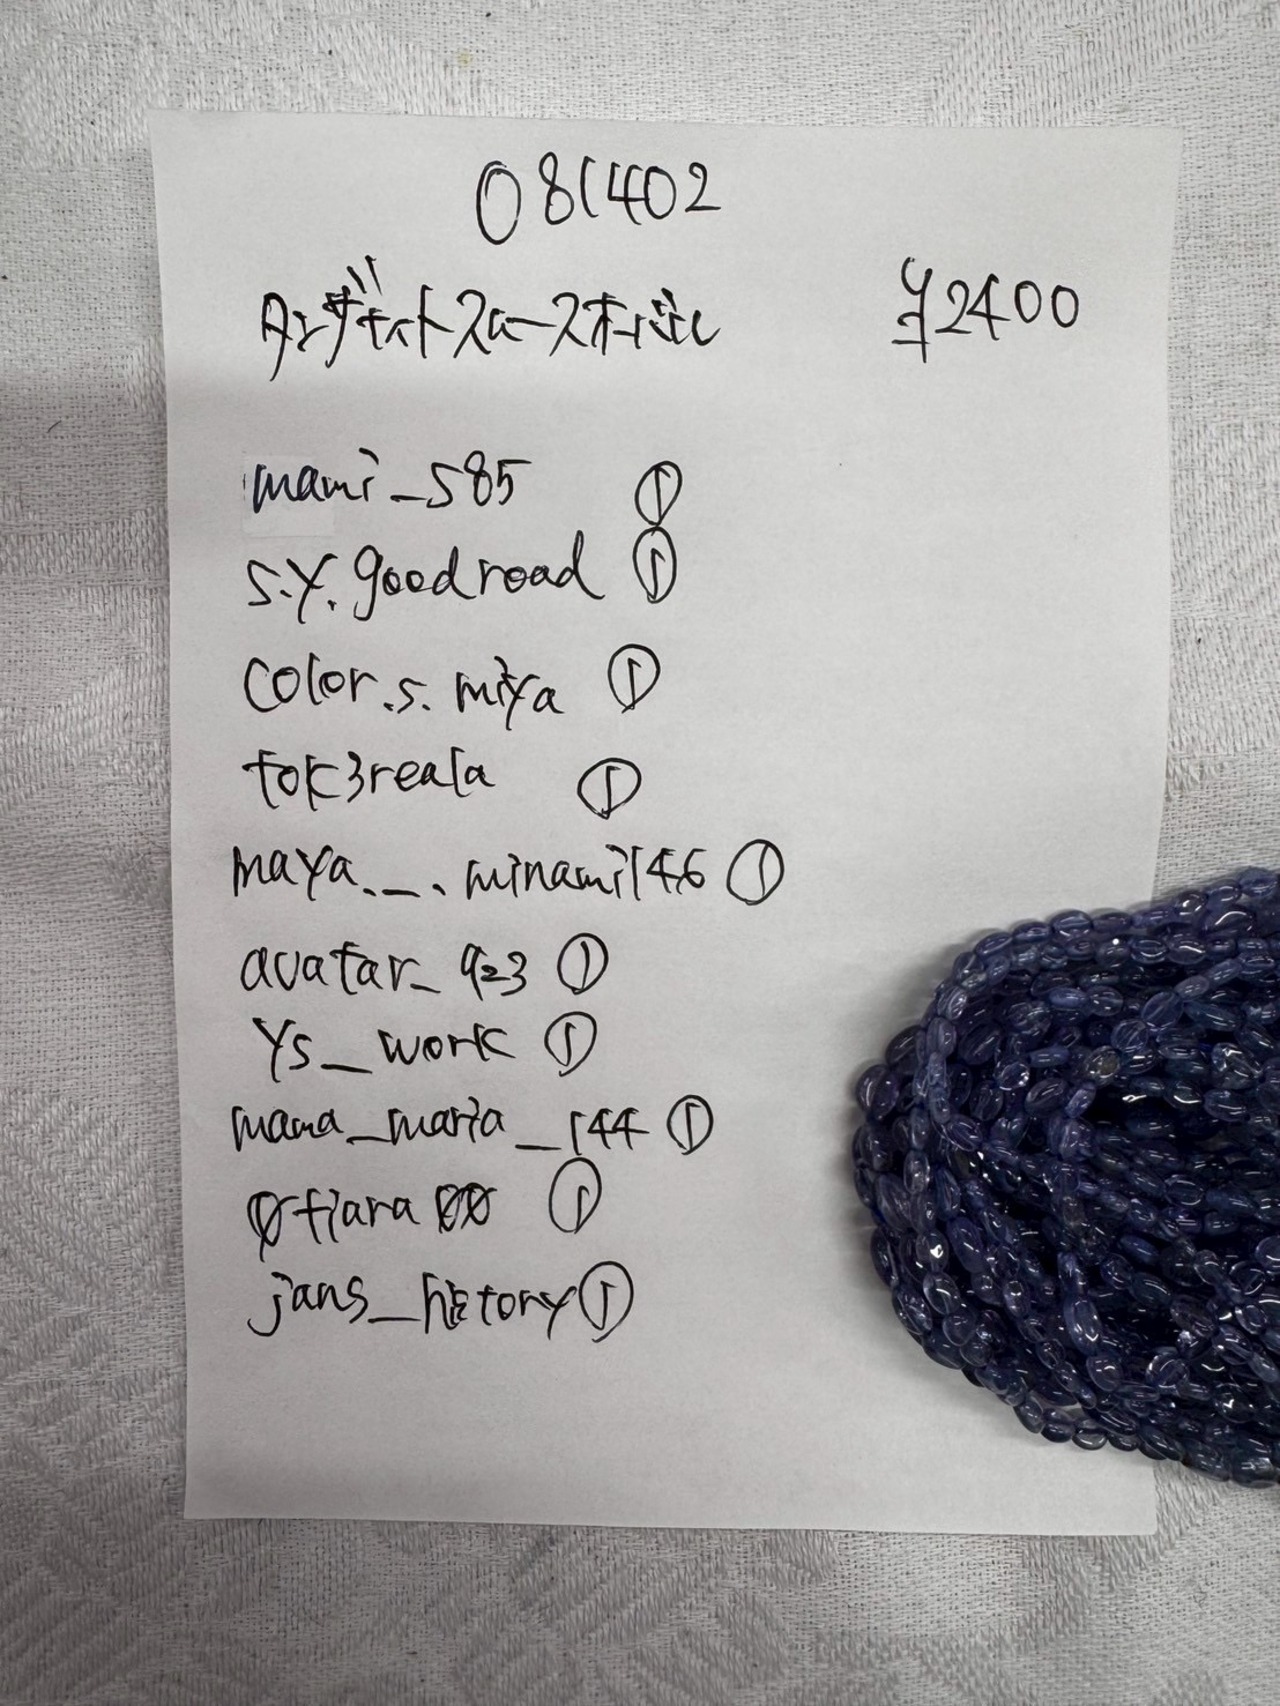 081402
タンザナイトスムースオーバル ¥2400
mami_s85 ①
s.y.goodroad ①
color.s.miya ①
tok3reala ①
maya._.minami146 ①
avatar_923 ①
ys_work ①
mama_maria_144 ①
0tiara00 ①
jans_history ①